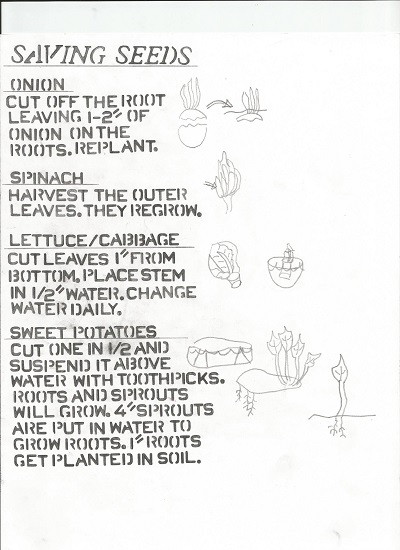 SAVING SEEDS
ONION
CUT OFF THE ROOT
LEAVING 1-2" OF
ONION ON THE
ROOTS. REPLANT.
SPINACH
HARVEST THE OUTER
LEAVES. THEY REGROW.
LETTUCE/CABBAGE
CUT LEAVES 1" FROM
BOTTOM. PLACE STEM
IN 1/2" WATER. CHANGE
WATER DAILY.
SWEET POTATOES
CUT ONE IN 1/2 AND
SUSPEND IT ABOVE
WATER WITH TOOTHPICKS.
ROOTS AND SPROUTS
WILL GROW. 4" SPROUTS
ARE PUT IN WATER TO
GROW ROOTS. 1" ROOTS
GET PLANTED IN SOIL.